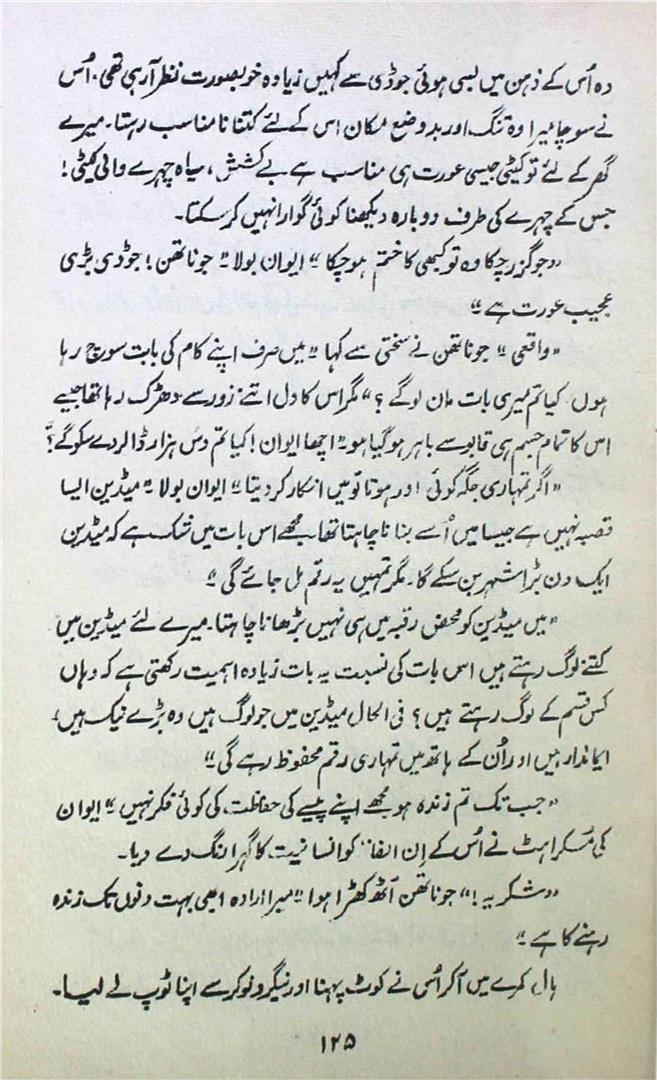 وہ اُس کے ذہن میں بسی ہوئی جوڈی سے کہیں زیادہ خوبصورت نظر آ رہی تھی. اُس
نے سوچا میرا وہ تنگ اور بد وضع مکان اس کے لئے کتنا نامناسب رہتا۔ میرے
گھر کے لئے تو کیٹی جیسی عورت ہی مناسب ہے بے کشش، سیاہ چہرے والی کیٹی!
جس کے چہرے کی طرف دوبارہ دیکھنا کوئی گوارا نہیں کر سکتا۔
"جو گزر چکا وہ تو کبھی کا ختم ہو چکا" ایوان بولا" جوناتھن! جوڈی بڑی
عجیب عورت ہے"
"واقعی" جوناتھن نے سختی سے کہا" میں صرف اپنے کام کی بابت سوچ رہا
ہوں۔ کیا تم میری بات مان لوگے؟" مگر اس کا دل اتنے زور سے دھڑک رہا تھا جیسے
اس کا تمام جسم ہی قابو سے باہر ہو گیا ہو" اچھا ایوان! کیا تم دس ہزار ڈالر دے سکوگے؟"
"اگر تمہاری جگہ کوئی اور ہوتا تو میں انکار کر دیتا" ایوان بولا" میڈین ایسا
قصبہ نہیں ہے جیسا میں اُسے بنانا چاہتا تھا۔ مجھے اس بات میں شک ہے کہ میڈین
ایک دن بڑا شہر بن سکے گا۔ مگر تمہیں یہ رقم مل جائے گی"
"میں میڈین کو محض رقبہ میں ہی نہیں بڑھانا چاہتا۔ میرے لئے میڈین میں
کتنے لوگ رہتے ہیں اس بات کی نسبت یہ بات زیادہ اہمیت رکھتی ہے کہ وہاں
کس قسم کے لوگ رہتے ہیں؟ فی الحال میڈین میں جو لوگ ہیں وہ بڑے نیک ہیں،
ایماندار ہیں اور اُن کے ہاتھ میں تمہاری رقم محفوظ رہے گی"
"جب تک تم زندہ ہو مجھے اپنے پیسے کی حفاظت کی کوئی فکر نہیں" ایوان
کی مسکراہٹ نے اُس کے اِن الفاظ کو انسانیت کا گہرا رنگ دے دیا۔
"شکریہ!" جوناتھن اُٹھ کھڑا ہوا" میرا ارادہ ابھی بہت دنوں تک زندہ
رہنے کا ہے"
ہال کمرے میں آکر اُس نے کوٹ پہنا اور نیگرو نوکر سے اپنا ٹوپ لے لیا۔
۱۲۵